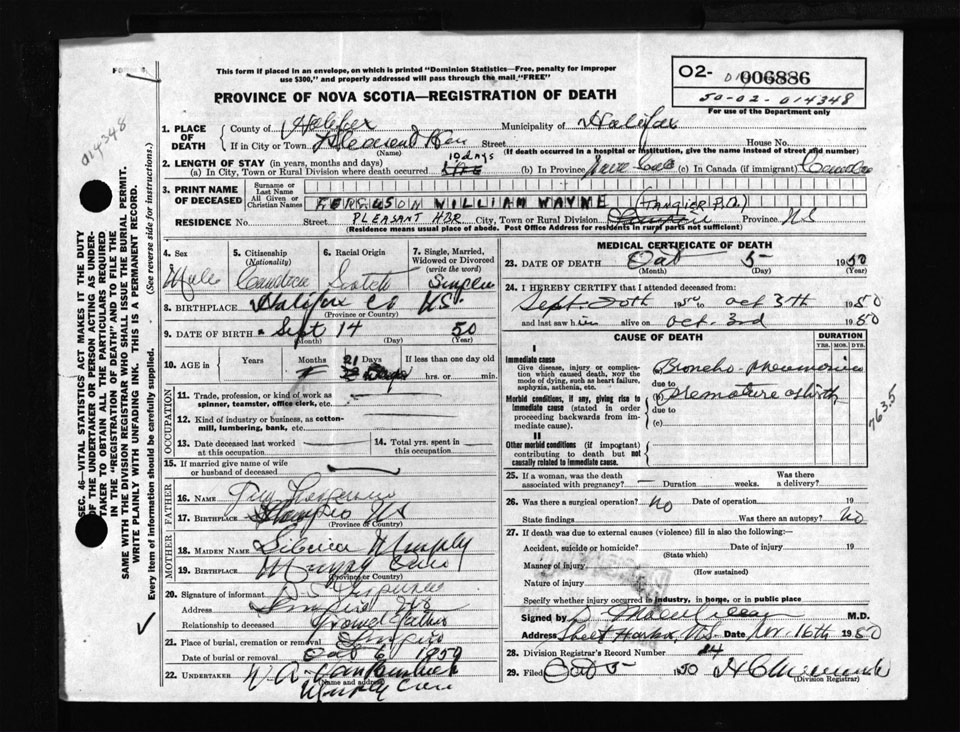 This form if placed in an envelope, on which is printed "Dominion Statistics—Free, penalty for improper
use $300," and properly addressed will pass through the mail "FREE"
PROVINCE OF NOVA SCOTIA—REGISTRATION OF DEATH
02- 006886
50-02-014348
For use of the Department only
014348
1. PLACE OF DEATH { County of Halifax Municipality of Halifax
If in City or Town Pleasant Har Street House No.
(Name) (If death occurred in a hospital or institution, give the name instead of street and number)
2. LENGTH OF STAY (in years, months and days) 19 days
(a) In City, Town or Rural Division where death occurred (b) In Province (c) In Canada (if immigrant)
3. PRINT NAME OF DECEASED { Surname or Last Name
All Given or Christian Names FERGUSON WILLIAM WAYNE (TANGIER P.O.)
RESIDENCE No. Street PLEASANT HBR City, Town or Rural Division Province NS
(Residence means usual place of abode. Post Office Address for residents in rural parts not sufficient)
SEC. 46—VITAL STATISTICS ACT MAKES IT THE DUTY
OF THE UNDERTAKER OR PERSON ACTING AS UNDER-
TAKER TO OBTAIN ALL THE PARTICULARS REQUIRED
IN THE "REGISTRATION OF DEATH" AND TO FILE THE
SAME WITH THE DIVISION REGISTRAR WHO SHALL ISSUE THE BURIAL PERMIT.
WRITE PLAINLY WITH UNFADING INK. THIS IS A PERMANENT RECORD.
Every item of information should be carefully supplied. (See reverse side for instructions.)
4. Sex 5. Citizenship (Nationality) 6. Racial Origin 7. Single, Married, Widowed or Divorced (write the word)
Male Scotch Single
8. BIRTHPLACE Halifax Co NS.
(Province or Country)
9. DATE OF BIRTH Sept 14 50
(Month) (Day) (Year)
10. AGE in { Years Months 21 Days If less than one day old
hrs. or min.
OCCUPATION
11. Trade, profession, or kind of work as
spinner, teamster, office clerk, etc.
12. Kind of industry or business, as cotton-
mill, lumbering, bank, etc.
13. Date deceased last worked at this occupation 14. Total yrs. spent in this occupation
15. If married give name of wife
or husband of deceased
FATHER
16. NAME
17. BIRTHPLACE NS
(Province or Country)
MOTHER
18. MAIDEN NAME Murphy
19. BIRTHPLACE Murphy Cove
(Province or Country)
20. Signature of informant
Address
Relationship to deceased Father
21. Place of burial, cremation or removal
Date of burial or removal Oct 6 1950
22. UNDERTAKER W A
(Name and address)
Murphy Cove
MEDICAL CERTIFICATE OF DEATH
23. DATE OF DEATH Oct 5 1950
(Month) (Day) (Year)
24. I HEREBY CERTIFY that I attended deceased from:
Sept. 20th 1950 to Oct 3th 1950
and last saw him alive on Oct. 3rd 1950
CAUSE OF DEATH DURATION
YRS. MOS. DYS.
I
Immediate cause
Give disease, injury or complication which caused death, not the mode of dying, such as heart failure, asphyxia, asthenia, etc.
Broncho-pneumonia
due to
Morbid conditions, if any, giving rise to immediate cause (stated in order proceeding backwards from immediate cause).
(b) premature birth
due to
(c)
763.5
II
Other morbid conditions (if important) contributing to death but not causally related to immediate cause.
25. If a woman, was the death associated with pregnancy? — Duration weeks. Was there a delivery?
26. Was there a surgical operation? No Date of operation 19
State findings Was there an autopsy? No
27. If death was due to external causes (violence) fill in also the following:
Accident, suicide or homicide? Date of injury 19
(State which)
Manner of injury
(How sustained)
Nature of injury
Specify whether injury occurred in industry, in home, or in public place
Signed by M.D.
Address Sheet Harbor, N.S. Date Nov. 16th 1950
28. Division Registrar's Record Number 24
29. Filed Oct 5 1950
(Division Registrar)